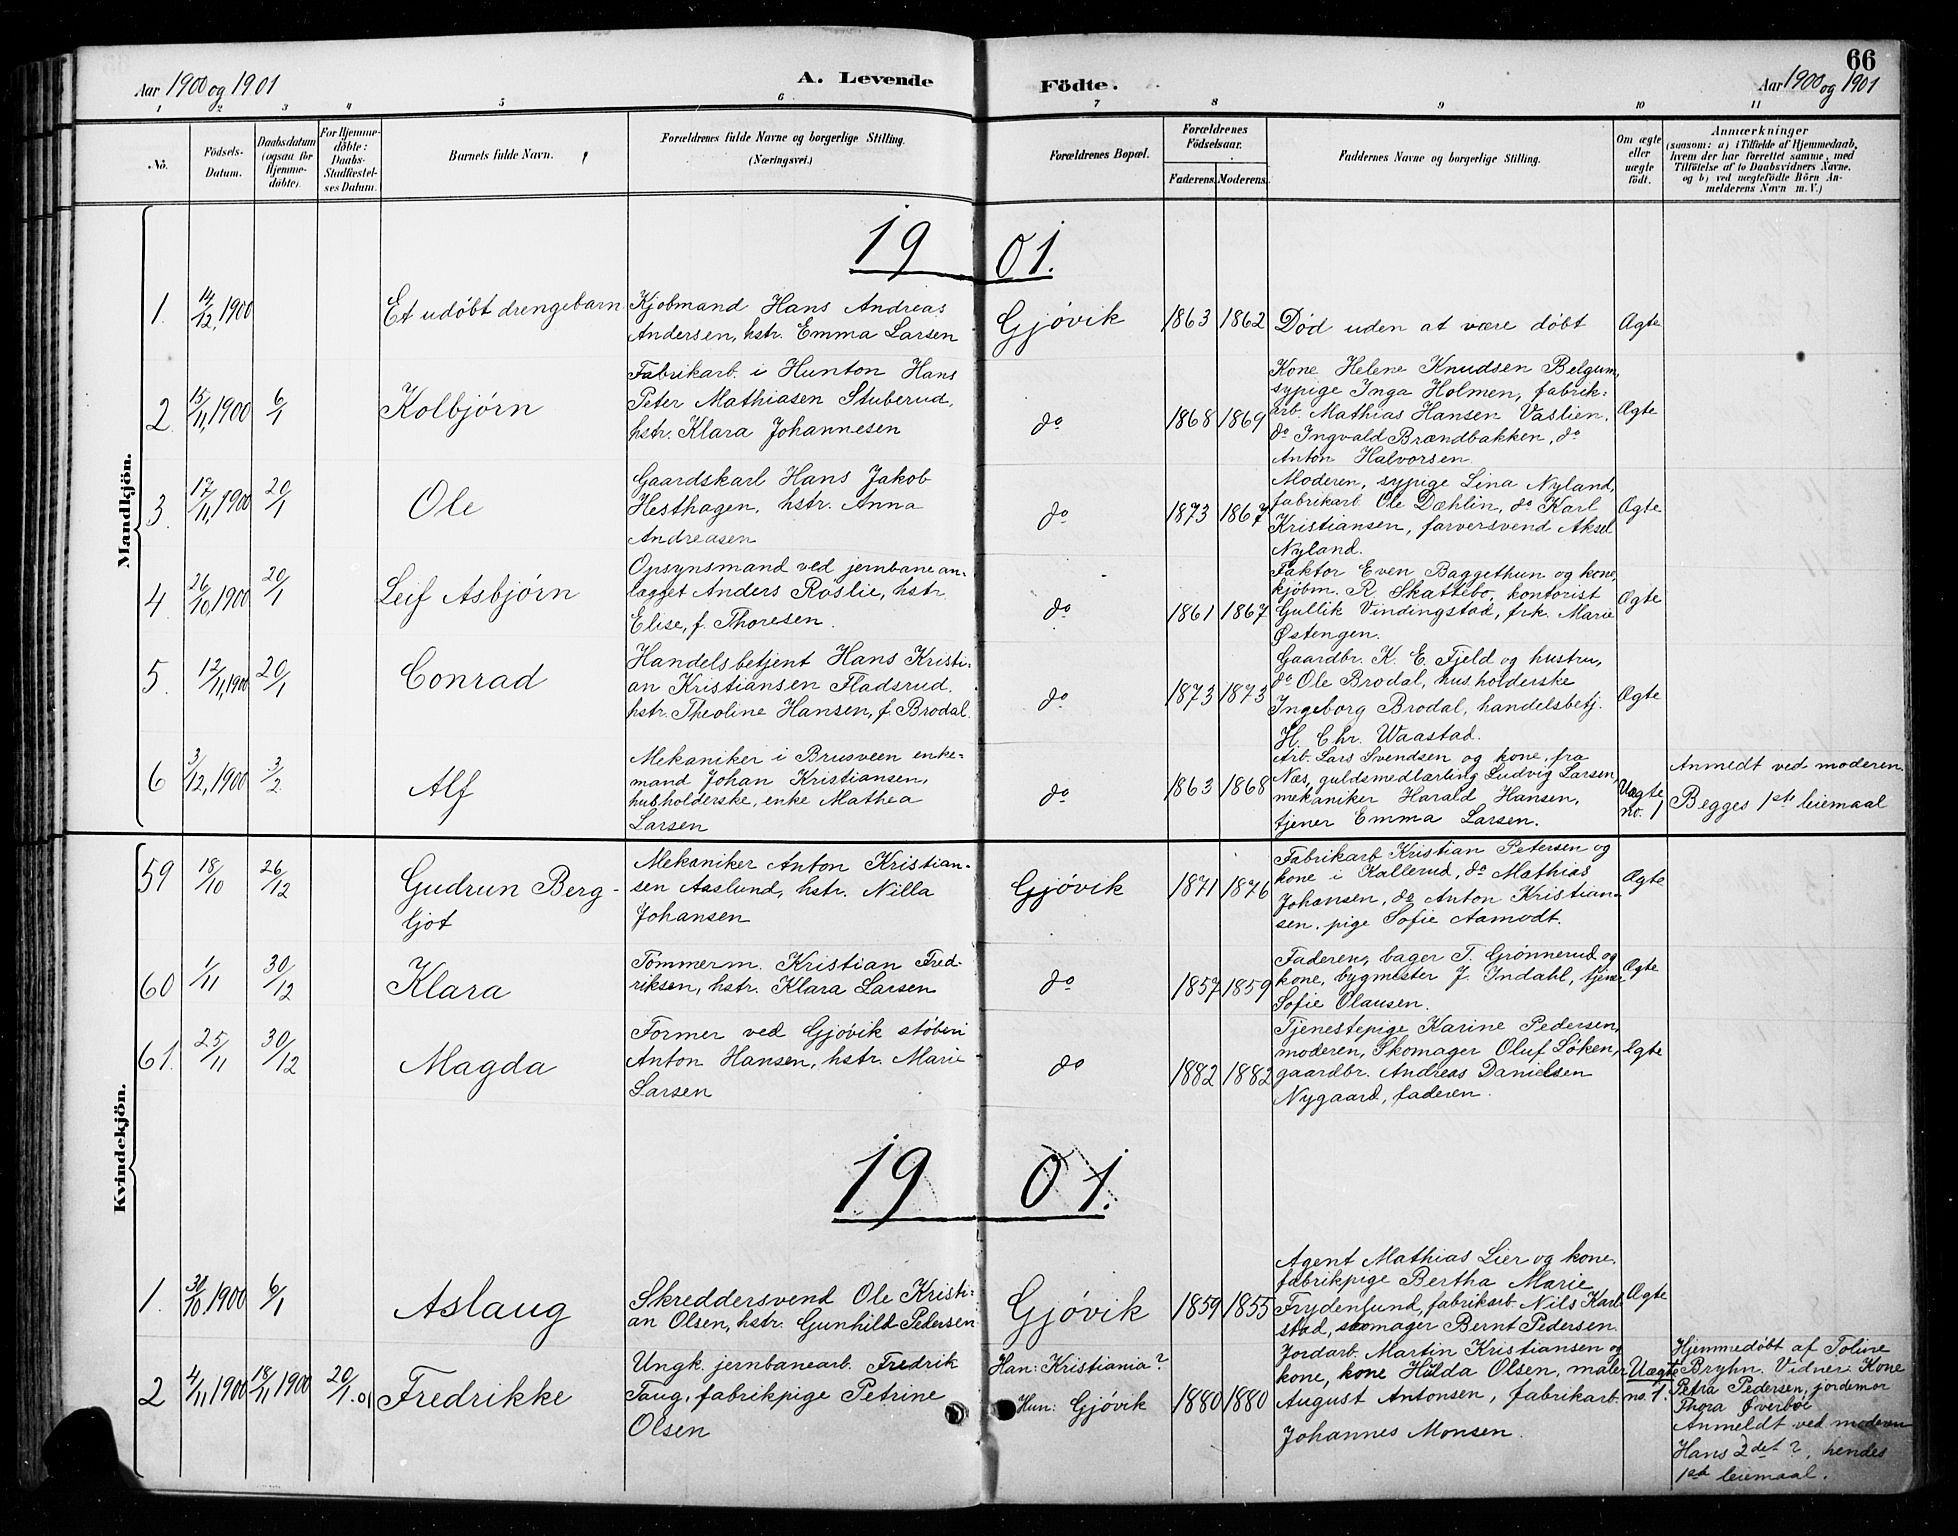 66
Aar 1900 og 1901
A. Levende
Födte.
Aar 1900 og 1901
1 2 3 4 5 6 7 8 9 10 11
No.
Födsels-
Datum.
Daabsdatum
(ogsaa for
Hjemme-
döbte).
For Hjemme-
döbte:
Daabs-
Stadfæstel-
ses Datum.
Barnets fulde Navn.
Forældrenes fulde Navne og borgerlige Stilling.
(Næringsvei.)
Forældrenes Bopæl.
Forældrenes
Födselsaar.
Faderens. Moderens.
Faddernes Navne og borgerlige Stilling.
Om ægte
eller
uægte
födt.
Anmærkninger
(saasom: a) i Tilfælde af Hjemmedaab,
hvem der har forrettet samme, med
Tilföielse af to Daabsvidners Navne.
og b) ved uægtefödte Börn An-
melderens Navn m. V.)
Mandkjön.
1901.
1. 14/12, 1900
Et udøbt drengebarn
Kjøbmand Hans Andreas
Andersen, hstr. Emma Larsen
Gjøvik
1863 1862
Død uden at være døbt
Ægte
2. 15/11, 1900 6/1
Kolbjørn
Fabrikarb. i Hunton Hans
Peter Mathiasen Stuberud,
hstr. Klara Johannesen
do
1868 1869
Kone Helene Knudsen Belgum,
sypige Inga Holmen, fabrik-
arb. Mathias Hansen Vaslien,
do Ingvald Brændbakken, do
Anton Halvorsen
Ægte
3. 17/11, 1900 20/1
Ole
Gaardskarl Hans Jakob
Hesthagen, hstr. Anna
Andreasen
do
1873 1867
Moderen, sypige Lina Nyland,
fabrikarb. Ole Dæhlin, do Karl
Kristiansen, farversvend Aksel
Nyland.
Ægte
4 26/10, 1900 20/1
Leif Asbjørn
Opsynsmand ved jernbanean-
lægget Anders Røslie, hstr.
Elise, f. Thoresen.
do
1861 1867
Faktor Even Baggethun og kone,
kjøbm. R. Skattebo, kontorist
Gullik Vindingstad, frk. Marie
Østengen.
Ægte
5. 12/11, 1900 20/1
Conrad
Handelsbetjent Hans Kristi-
an Kristiansen Fladsrud,
hstr. Theoline Hansen, f. Brodal.
do
1873 1873
Gaardbr. K. E. Fjeld og hustru,
do Ole Brodal, husholderske
Ingeborg Brodal, handelsbetj.
H. Chr. Waastad.
Ægte
6 3/12, 1900 3/2
Alf
Mekaniker i Brusveen enke-
mand Johan Kristiansen,
husholderske, enke Mathea
Larsen
do
1863 1868
Arb. Lars Svendsen og kone, fra
Næs, guldsmedlærling Ludvig Larsen,
mekaniker Harald Hansen,
tjener Emma Larsen.
Uægte
no. 1
Anmedt ved moderen
Begges 1ste leiemaal
Kvindekjön.
59 18/10 26/12
Gudrun Berg-
ljot
Mekaniker Anton Kristian-
sen Aaslund, hstr. Nilla
Johansen
Gjøvik
1871 1876
Fabrikarb. Kristian Petersen og
kone i Kallerud, do Mathias
Johansen, do Anton Kristian-
sen, pige Sofie Aamodt.
Ægte
60 1/11 30/12
Klara
Tømmerm. Kristian Fred-
riksen, hstr. Klara Larsen
do
1857 1859
Faderen, bager T. Grønnerud og
kone, bygmester J. Indahl, tjener
Sofie Olausen.
Ægte
61. 25/11 30/12
Magda
Former ved Gjøvik støberi
Anton Hansen, hstr. Marie
Larsen
do
1882 1882
Tjenestepige Karine Pedersen,
moderen, Skomager Oluf Løken,
gaardbr. Andreas Danielsen
Nygaard, faderen.
Ægte
1901.
1. 30/10 1900 6/1
Aslaug
Skreddersvend Ole Kristi-
an Olsen, hstr. Gunhild Pedersen
Gjøvik
1859 1855
Agent Mathias Lier og kone,
fabrikpige Bertha Marie
Frydenlund, fabrikarb. Nils Karl-
stad, skomager Bernt Pedersen.
Ægte
2 4/11 1900 18/11 1900 20/1. 01
Fredrikke
Ungk. jernbanearb. Fredrik
Taug, fabrikpige Petrine
Olsen
Han: Kristiania?
Hun: Gjøvik
1880 1880
Jordarb. Martin Kristiansen og
kone, kone Hilda Olsen, maler
August Antonsen, fabrikarb.
Johannes Monsen.
Uægte
no. 1.
Hjemmedøbt af Toline
Bryhn. Vidner: Kone
Petra Pedersen, jordemor
Thora Øverbøe
Anmeldt ved moderen
Hans 2det?, hendes
1ste leiemaal.